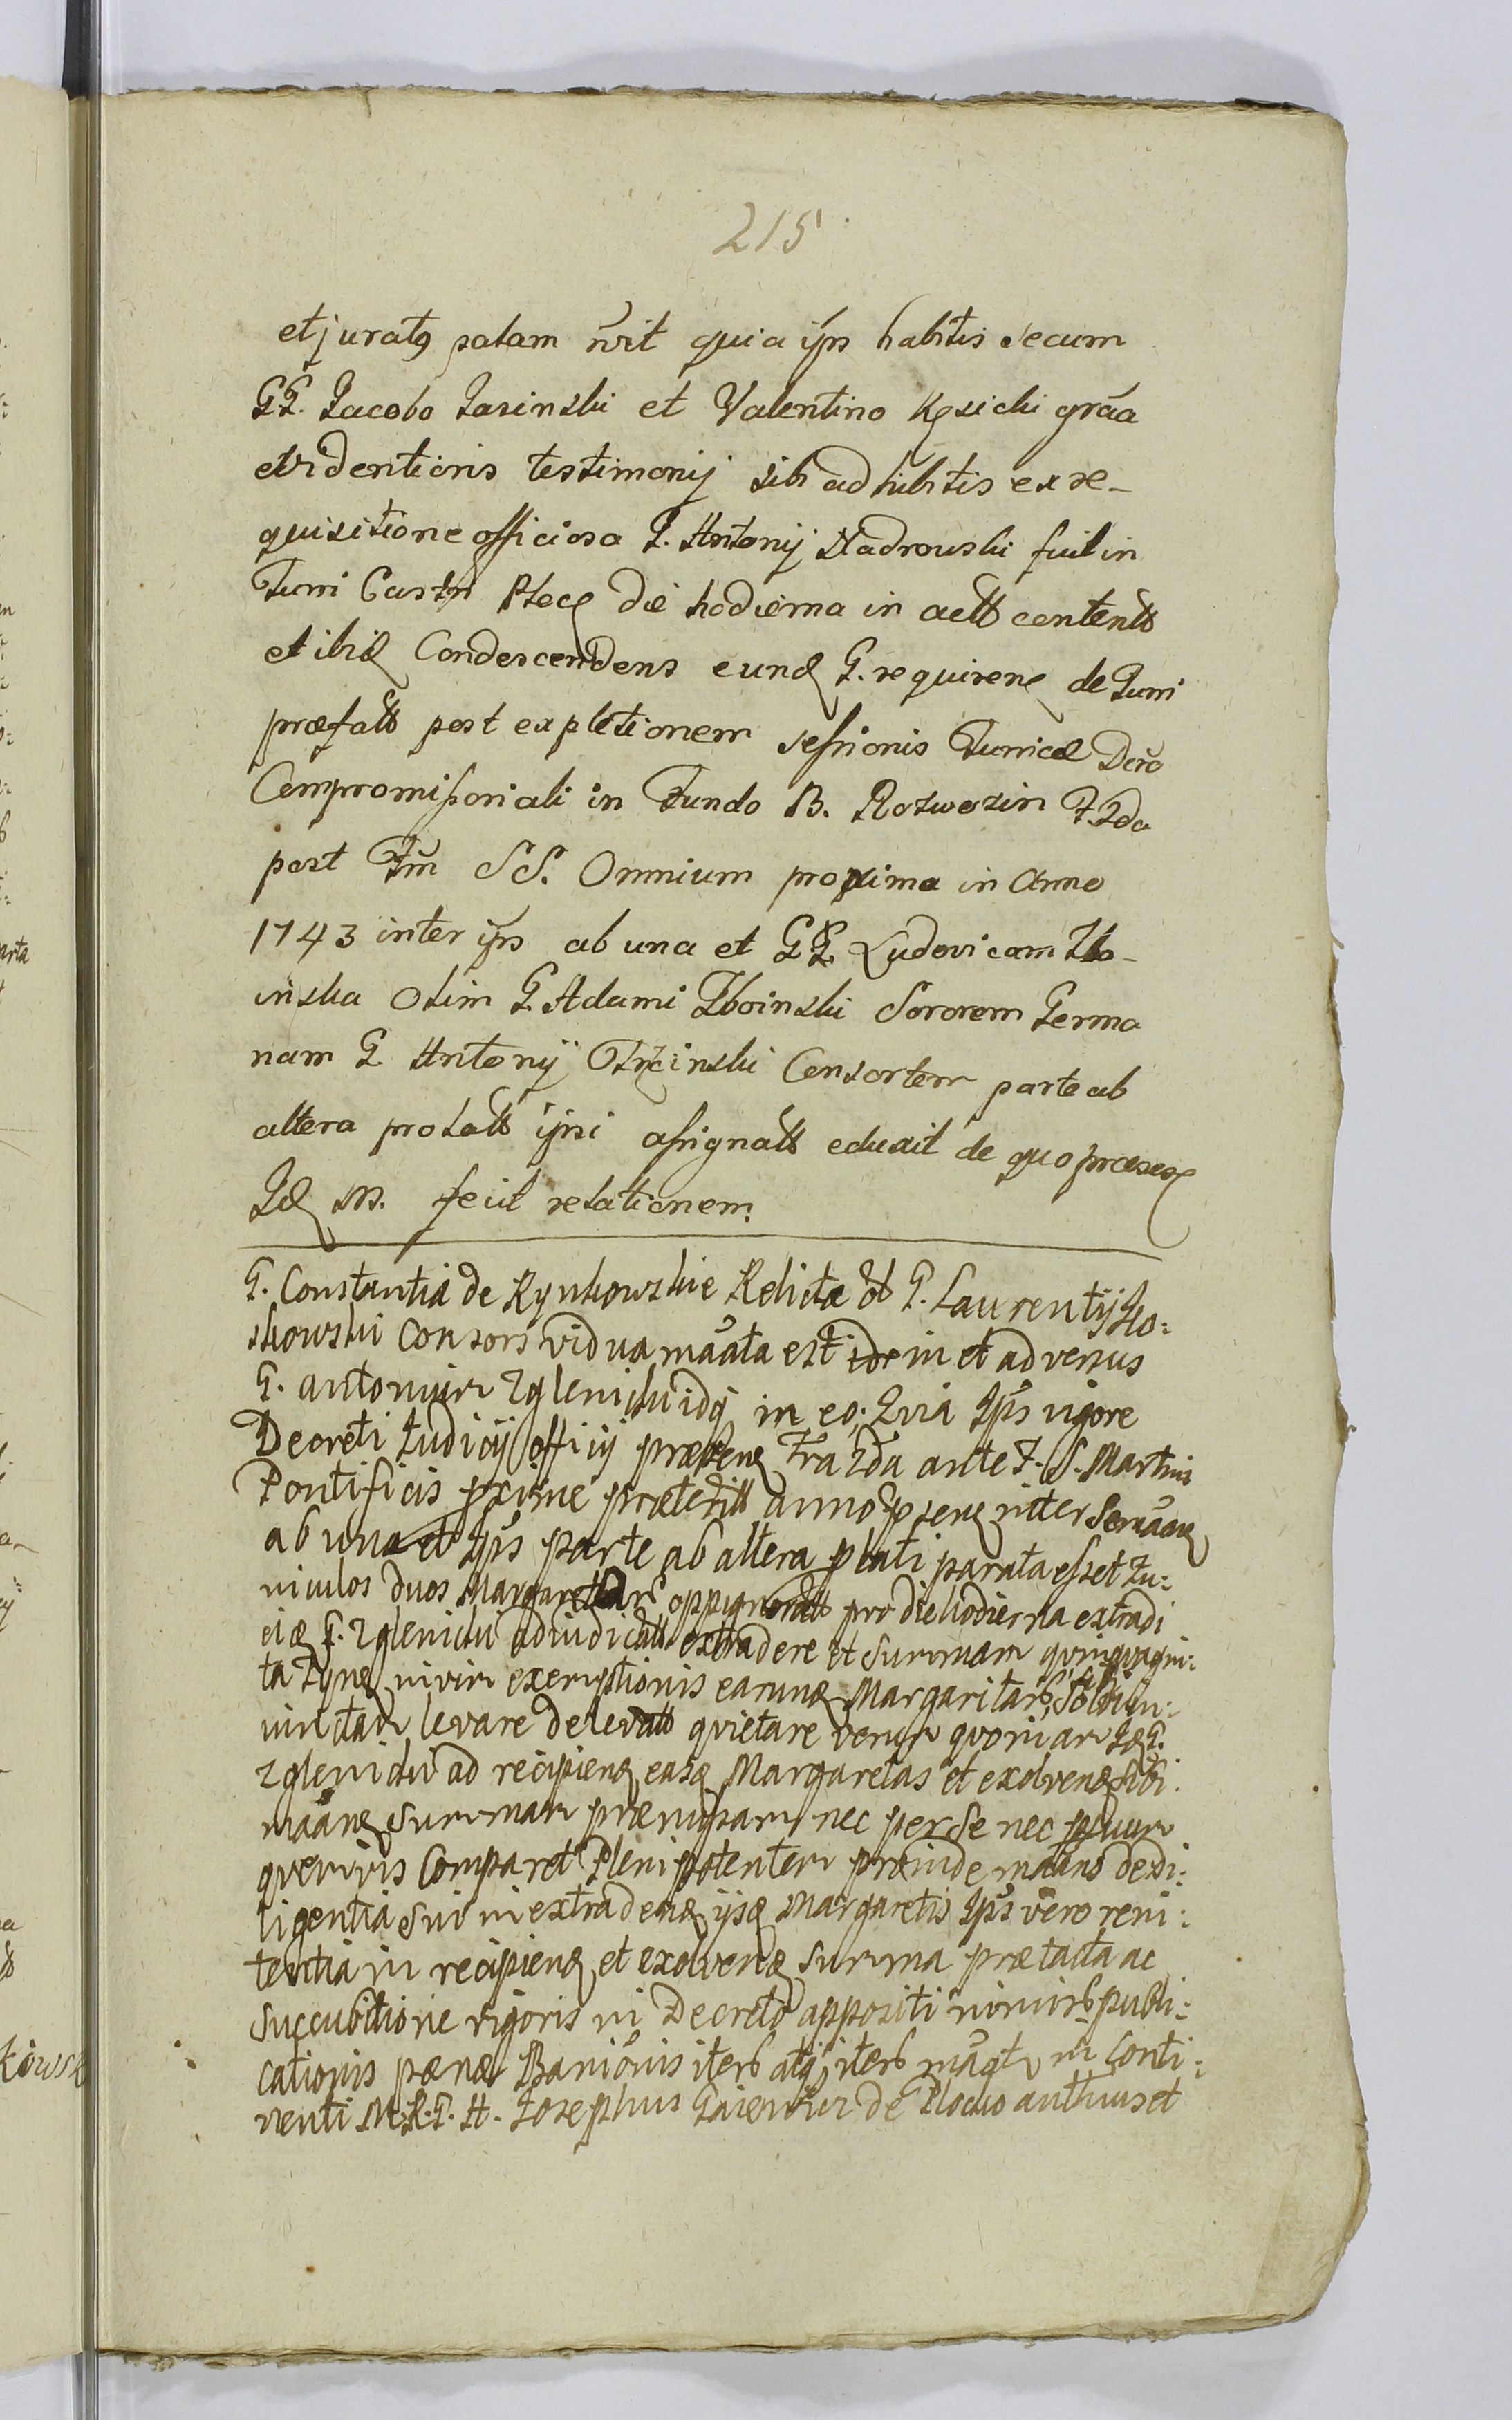 215
et juratq palam rr̃vit quia ip̃s habitis secum
GG. Jacobo Jasinski et Valentino Kęsicki grãa
evidentioris testimonij sibi adhibitis ex re-
quisitione officiosa G. Antonij Nadrowski fuit in
Turri Castri Plocę die hodierna in actt contentt
et ibię Condescendens eundę G. requirenę de Turri
præfatt post expletionem sessionis Turricæ Dcr̃o
Compromissoriali in Fundo B. Rotwozin F. 2da
post Ftm̃ SS. Omnium proxima in Anno
1743 inter ip̃s ab una et GG. Ludovicam Zbo-
inska Olim G. Adami Zboinski Sororem Germa
nam G. Antonij Trzcinski Consortem parte ab
altera prolatt ipsi assignatt eduxit de quo præsesę
Idę M. fecit relationem.
G. Constantia de Rynkowskie Relicta ol G. Laurentij Ko:
skowski Consors vidua mãata est in et adversus
G. Antonium Zglenicki idq in eo; Quia Ip̃s vigore
Decreti Judicij officij præsenę Fra 2da ante F. S. Martini
Pontificis pxime præteritt anno psenę inter Semãanę
ab una et Ip̃s parte ab altera plati parata esset Fu:
niculos duos Margaretarũ oppignoratt pro die hodierna extradi
eidę G. Zglenicki adiudicatt extradere et Summam quinquagin:
ta Tynę nivin exemptionis earunę Margaritarũ,
levare delevatt quietare verum quoniam Idę G.
Zglenicki ad recipienę easę Margaretas et exolvenę Sibi
mãanę Summam præmissam nec per se nec p suum
quemvis Comparet Plenipotentem proinde mãans de di:
ligentia Sui in extradenę ijsę Margaretis Ip̃s vero reni:
tentia in recipienę et exolvenę Summa prætacta ac
Succubitione rigoris in Decreto appositi nimirũ publi:
cationis pænæ Baniõnis iterũ atq iterũ mãatr in Conti:
nenti M. R. G. H. Josephus Gaiewski de Plocko anthus et